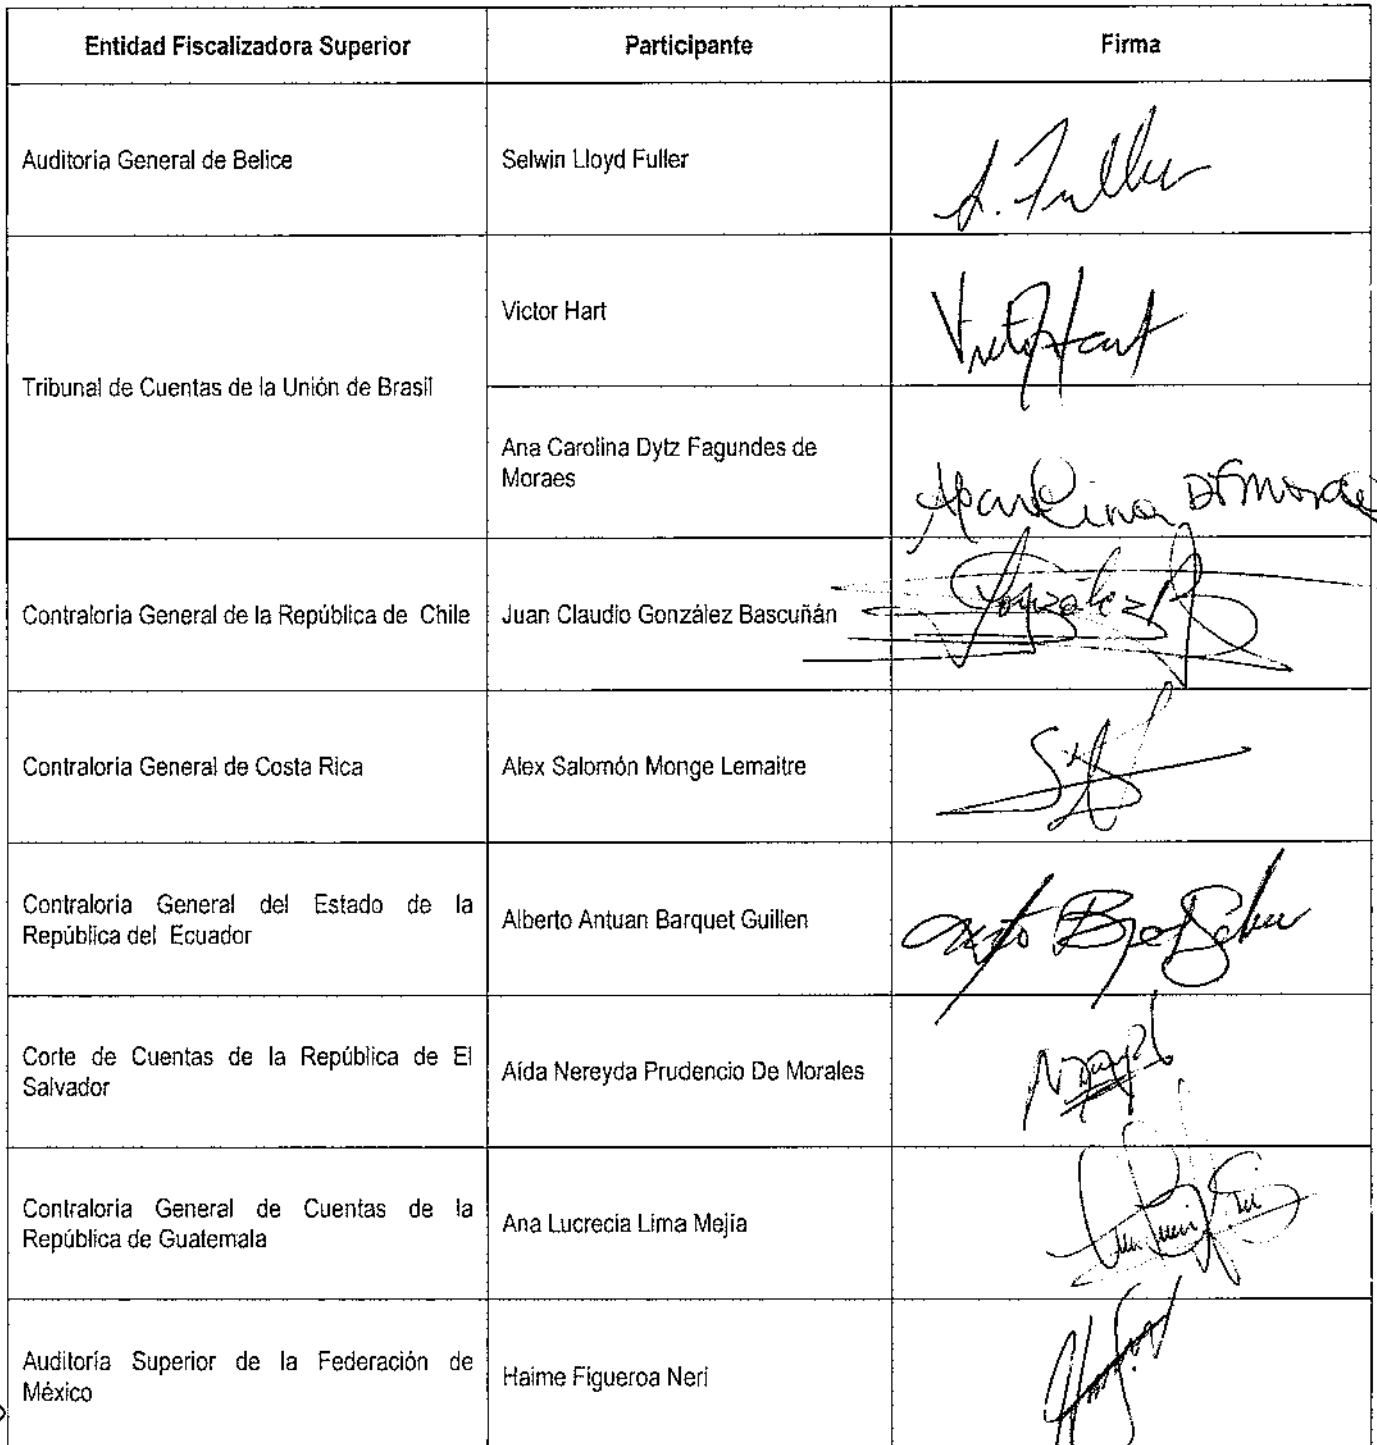 Entidad Fiscalizadora Superior Participante Firma
Auditoría General de Belice Selwin Lloyd Fuller S. Fuller
Victor Hart Victor Hart
Tribunal de Cuentas de la Unión de Brasil
Ana Carolina Dytz Fagundes de
Moraes
Contraloría General de la República de Chile Juan Claudio González Bascuñán González B
Contraloría General de Costa Rica Alex Salomón Monge Lemaitre
Contraloría General del Estado de la
República del Ecuador
Alberto Antuan Barquet Guillen
Corte de Cuentas de la República de El
Salvador
Aída Nereyda Prudencio De Morales
Contraloría General de Cuentas de la
República de Guatemala
Ana Lucrecia Lima Mejía
Auditoría Superior de la Federación de
México
Haime Figueroa Neri